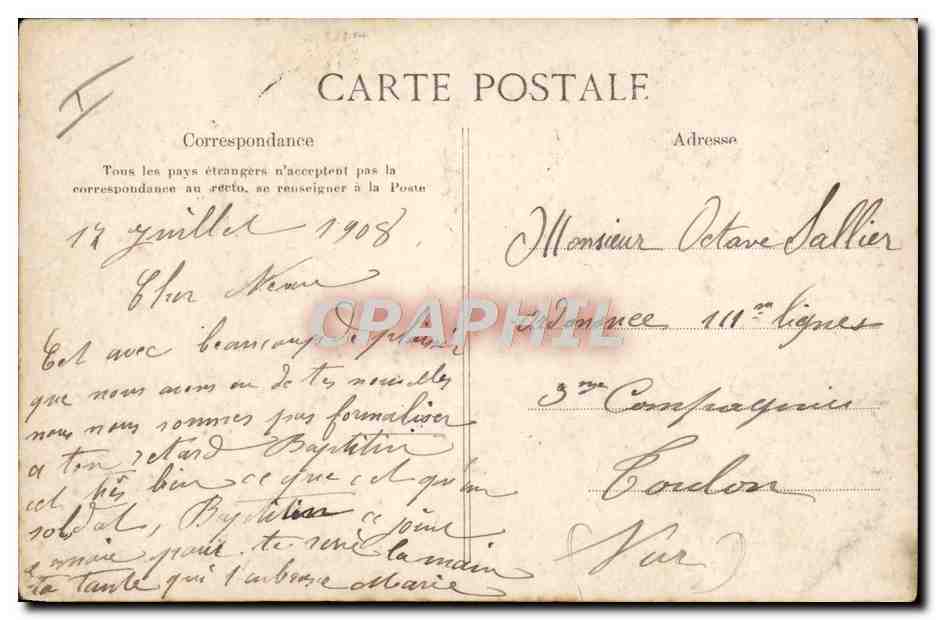 CARTE POSTALE
Correspondance
Tous les pays étrangers n'acceptent pas la
correspondance au recto, se renseigner à la Poste
12 Juillet 1908
Cher Neveu
Cet avec beaucoup de plaisir
que nous avons eu de tes nouvelles
nous nous sommes pas formaliser
a ton retard Baptistin
cet très bien ce que cet qu'un
soldat, Baptistin ce joint
a moie pour te serré la main
ta tante qui t'embrase Marie
Adresse
Monsieur Octave Sallier
111me lignes
3me Compagnie
Toulon
(Var)
CPAPHIL